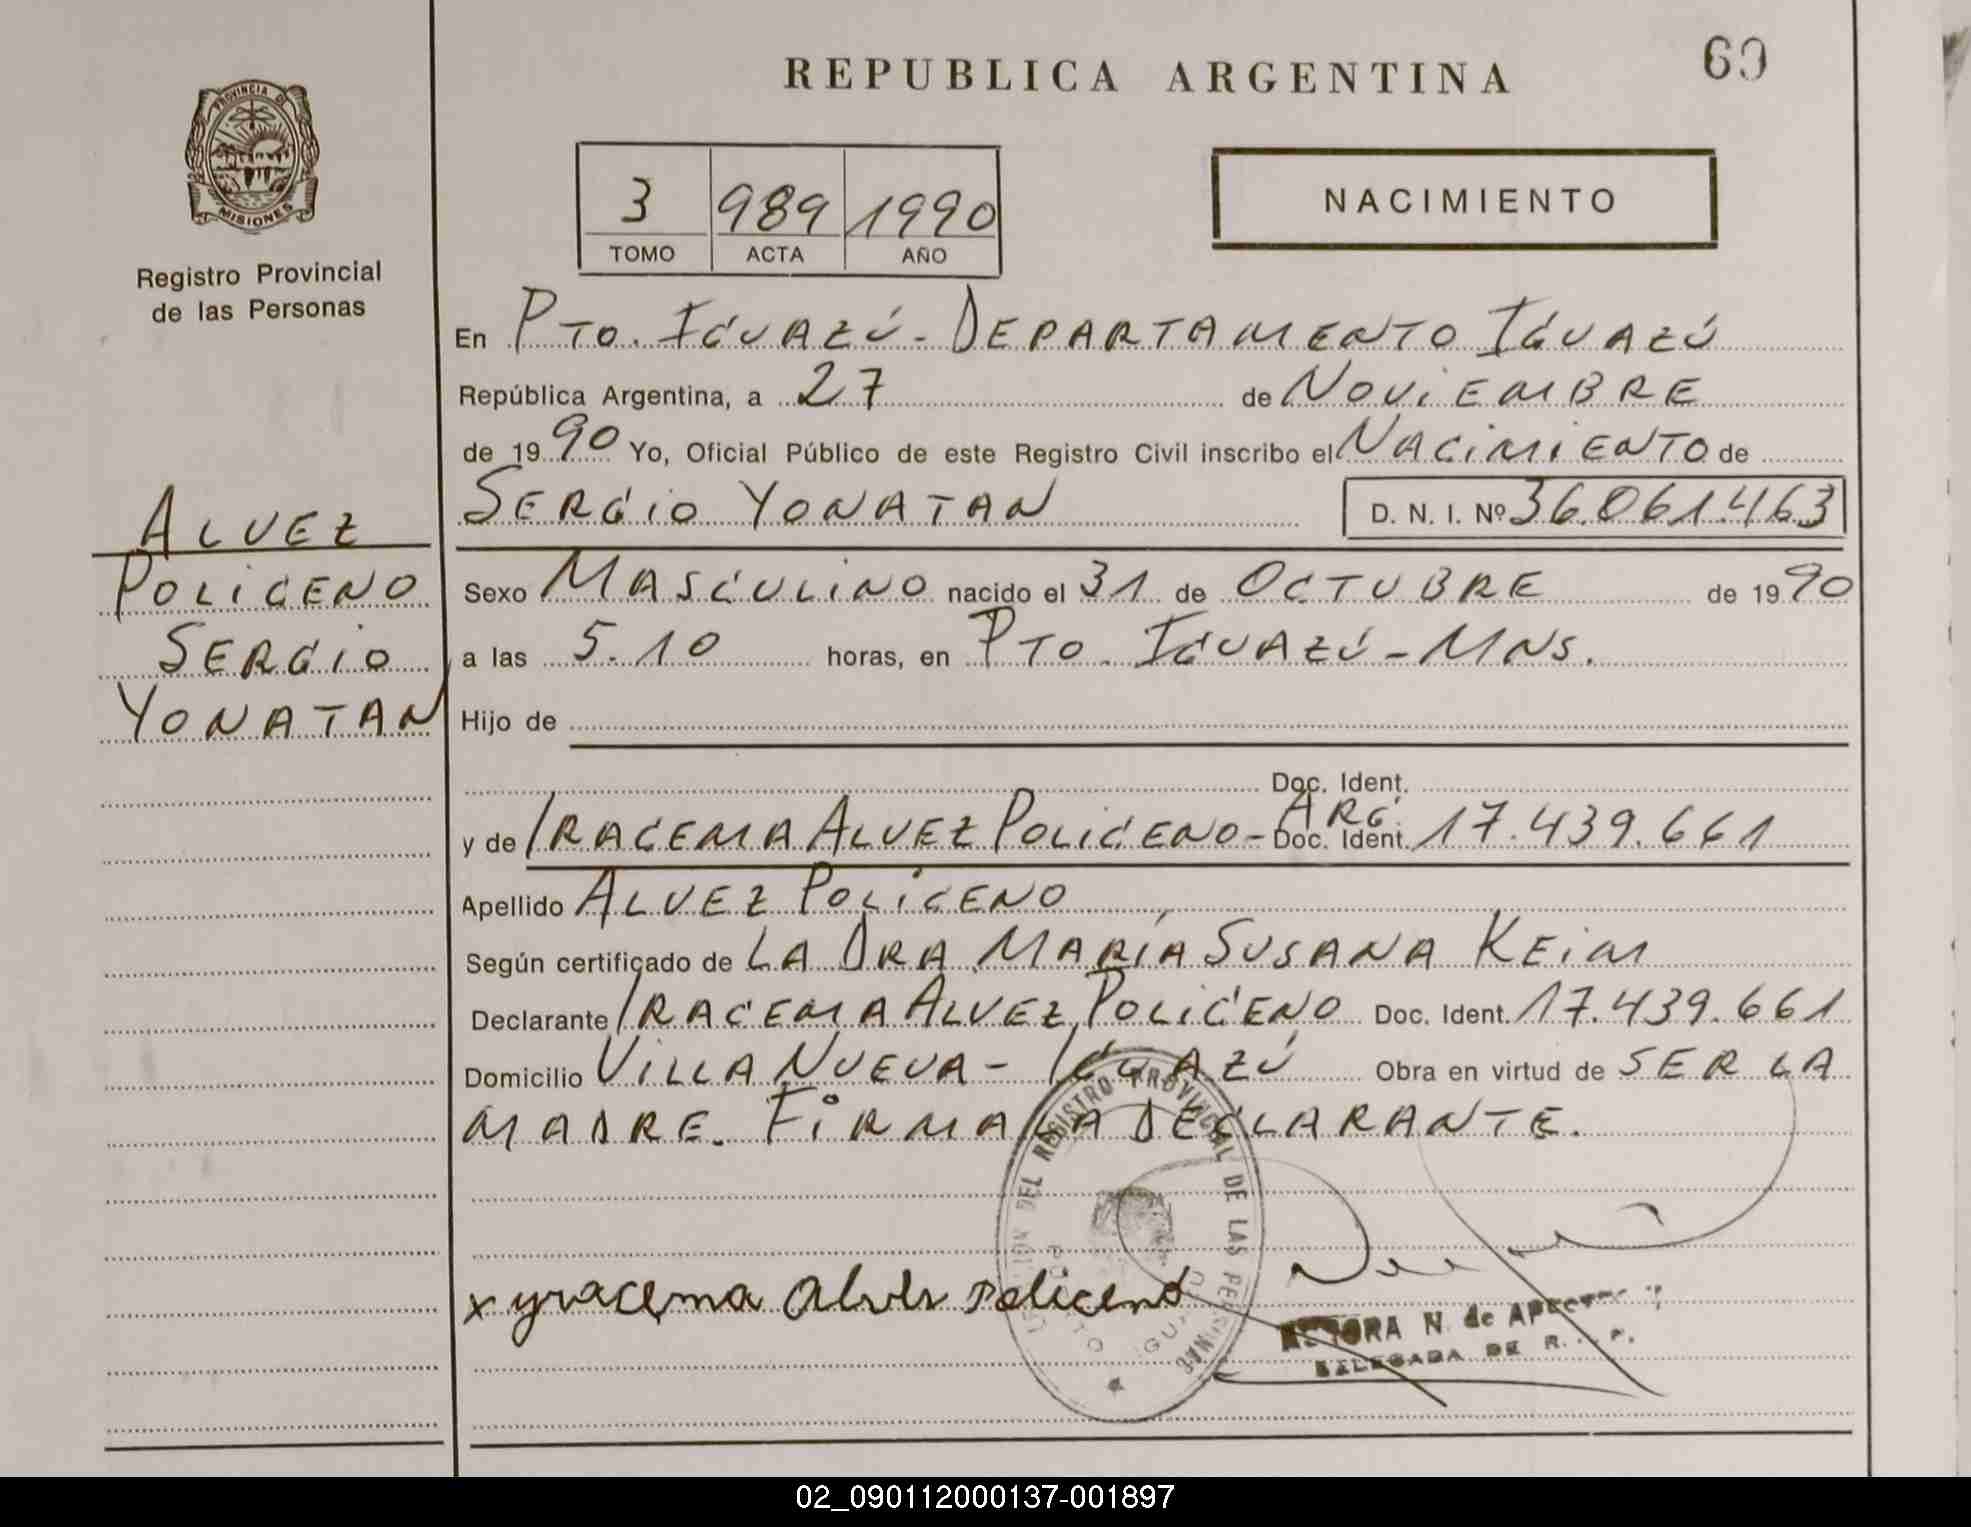 REPUBLICA ARGENTINA
60
PROVINCIA DE
MISIONES
Registro Provincial
de las Personas
3 989 1990
TOMO ACTA AÑO
NACIMIENTO
En PTO. IGUAZÚ - DEPARTAMENTO IGUAZÚ
República Argentina, a 27 de NOVIEMBRE
de 1990 Yo, Oficial Público de este Registro Civil inscribo el NACIMIENTO de
SERGIO YONATAN D. N. I. Nº 36.061.463
ALVEZ
POLICENO
SERGIO
YONATAN
Sexo MASCULINO nacido el 31 de OCTUBRE de 1990
a las 5.10 horas, en PTO. IGUAZÚ - MNS.
Hijo de
Doc. Ident.
y de IRACEMA ALVEZ POLICENO - ARG. Doc. Ident. 17.439.661
Apellido ALVEZ POLICENO
Según certificado de LA DRA MARÍA SUSANA KEIM
Declarante IRACEMA ALVEZ POLICENO Doc. Ident. 17.439.661
Domicilio VILLA NUEVA - IGUAZÚ Obra en virtud de SER LA
MADRE. FIRMA LA DECLARANTE.
DEL REGISTRO PROVINCIAL DE LAS PERSONAS
x yracema Alves Policeno
N. de
DELEGADA DE R.
02_090112000137-001897